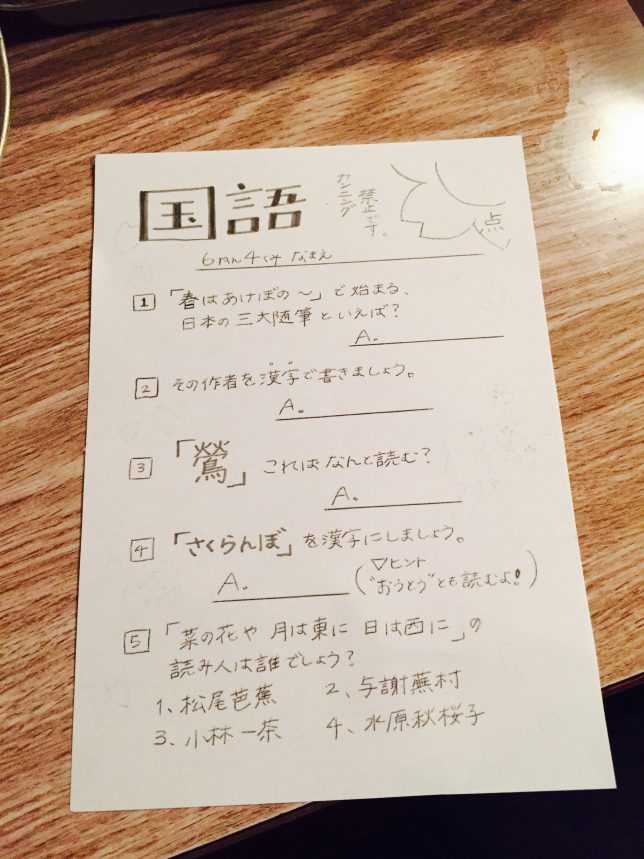 国語
カンニング
禁止です。
点
6ねん4くみ なまえ
1 「春はあけぼの〜」で始まる、
日本の三大随筆といえば?
A.
2 その作者を漢字で書きましょう。
A.
3 「鶯」これはなんと読む?
A.
4 「さくらんぼ」を漢字にしましょう。
A. (▽ヒント
"おうとう"とも読むよ!)
5 「菜の花や 月は東に 日は西に」の
読み人は誰でしょう?
1、松尾芭蕉 2、与謝蕪村
3、小林一茶 4、水原秋桜子